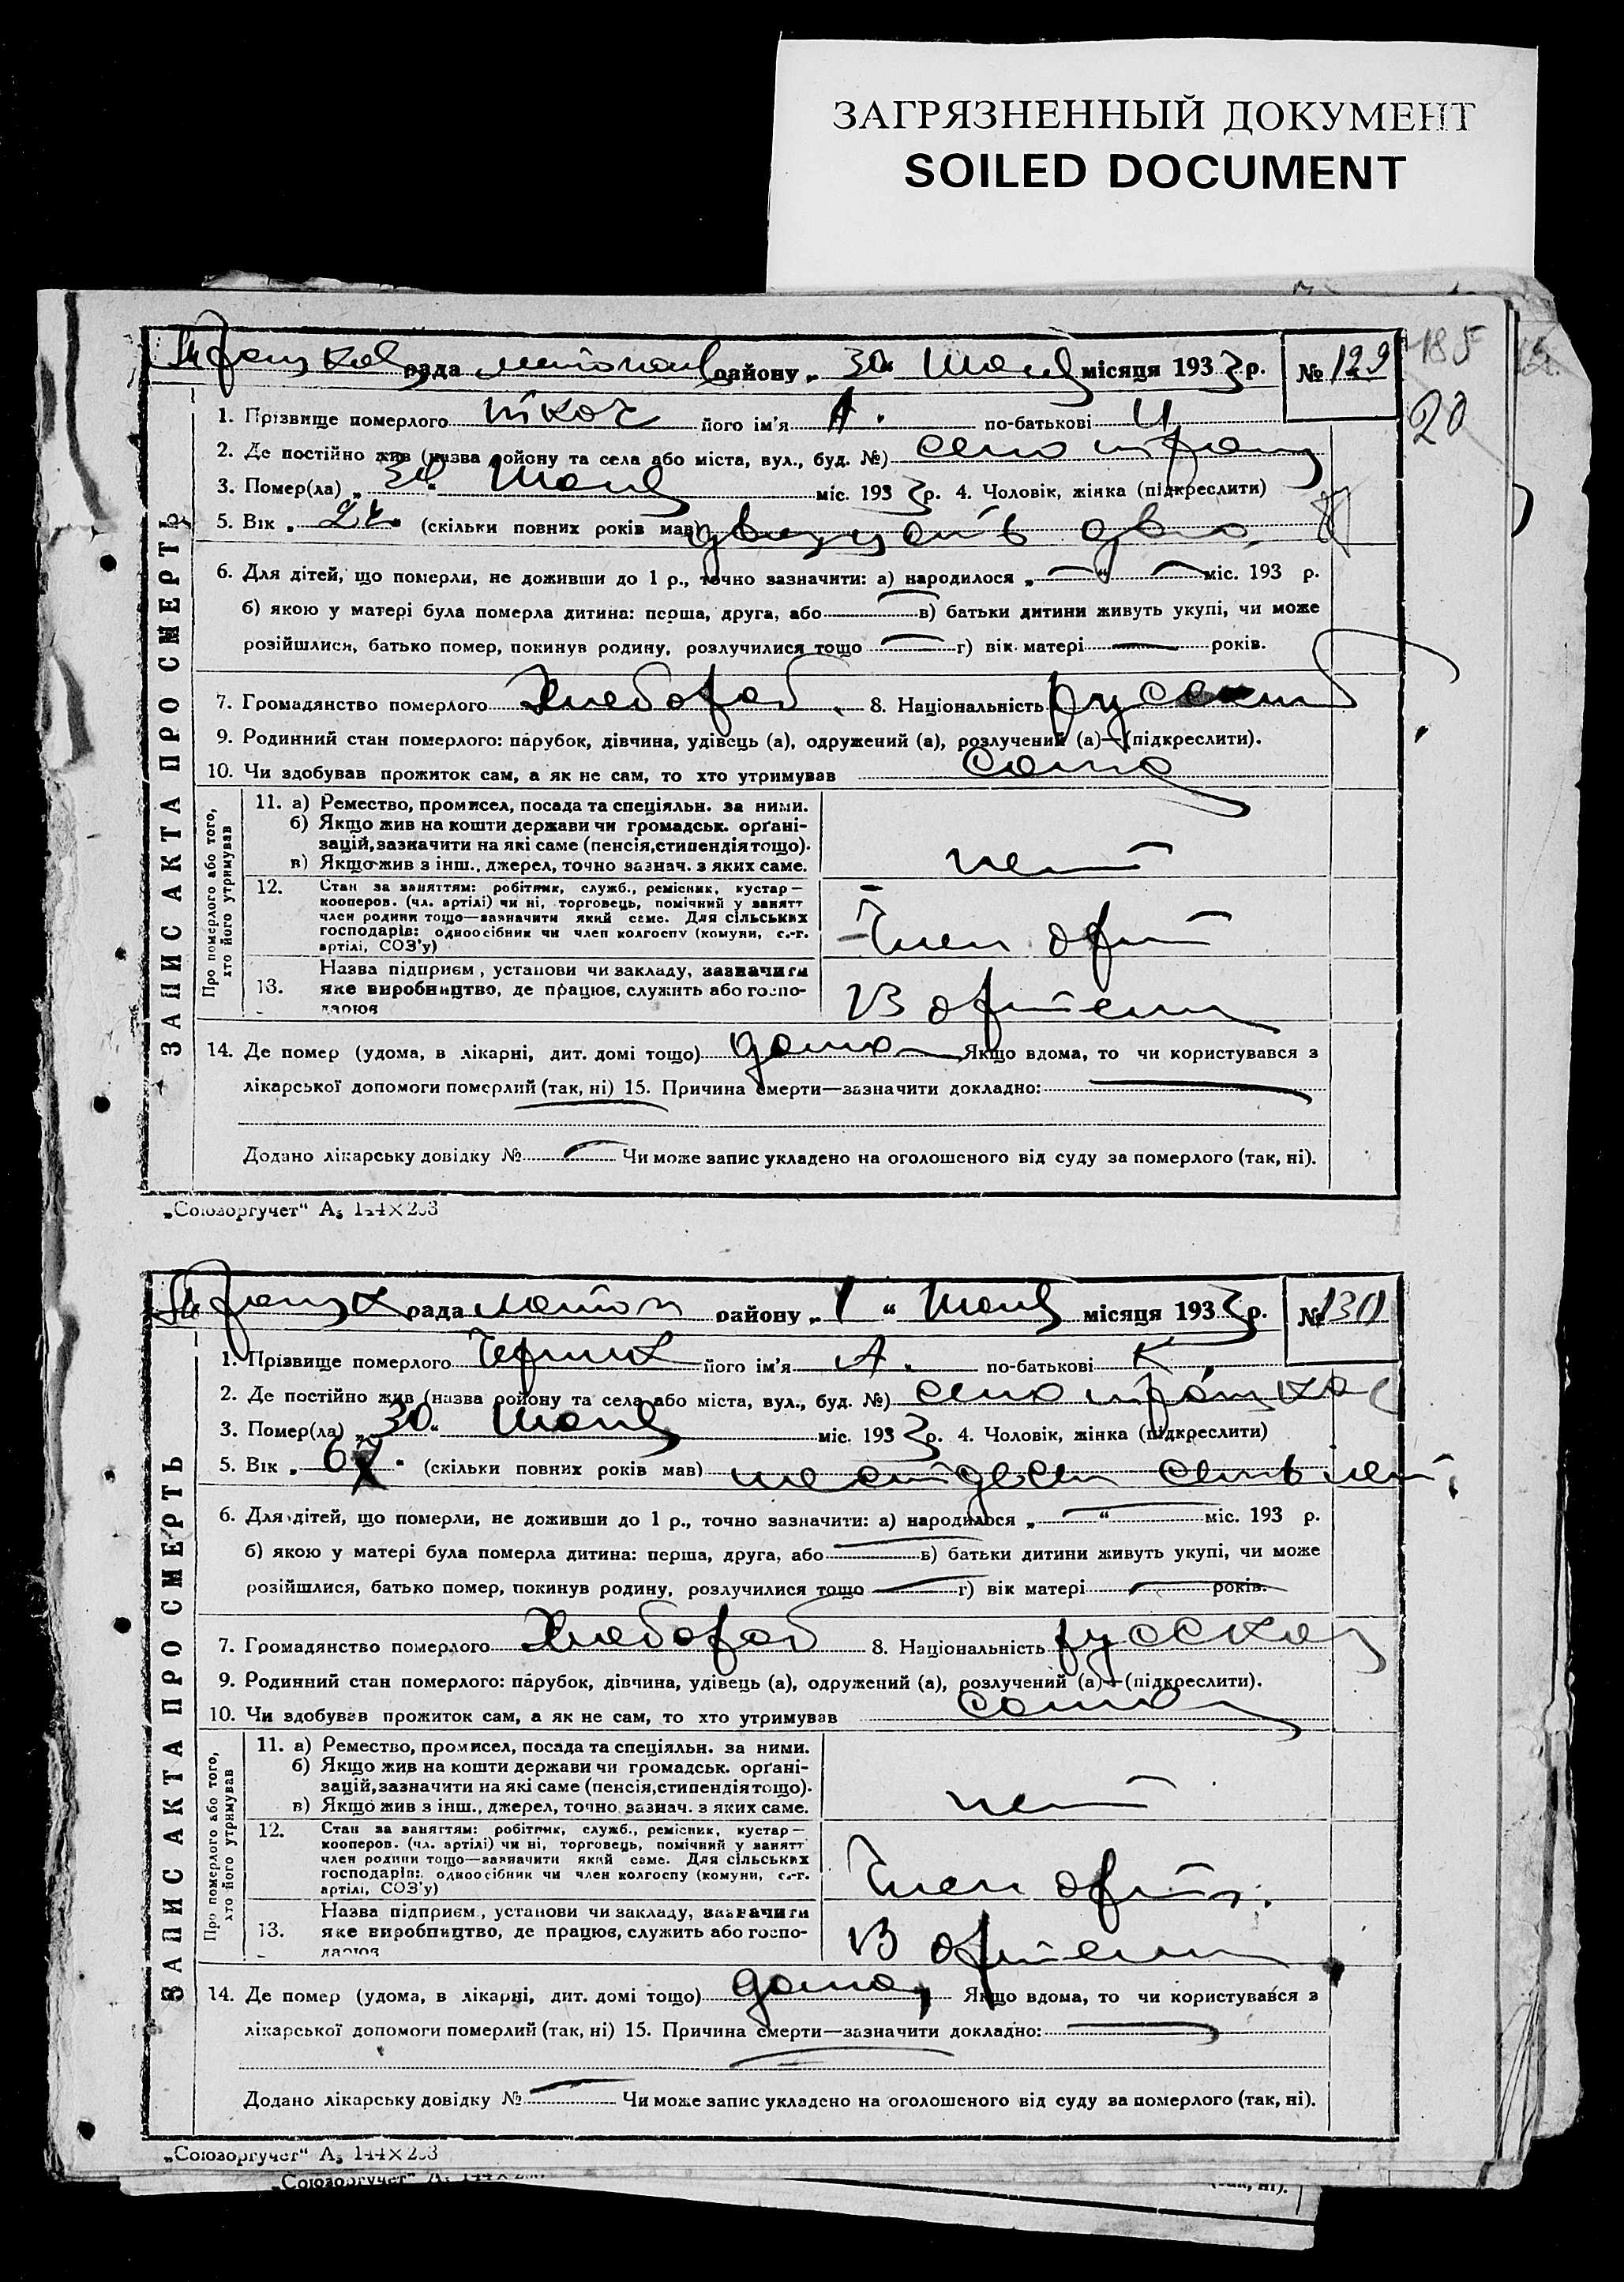 ЗАГРЯЗНЕННЫЙ ДОКУМЕНТ
SOILED DOCUMENT
185
20
ЗАПИС АКТА ПРО СМЕРТЬ
рада району „30“ мая місяця 1933 р. № 129
1. Прізвище померлого його ім'я А. по-батькові И
2. Де постійно жив (назва району та села або міста, вул., буд. №) село
3. Помер(ла) „30“ мая міс. 1933 р. 4. Чоловік, жінка (підкреслити)
5. Вік „22“ (скільки повних років мав) двадцать два
6. Для дітей, що померли, не доживши до 1 р., точно зазначити: а) народилося „—“ — міс. 193 р.
б) якою у матері була померла дитина: перша, друга, або — в) батьки дитини живуть укупі, чи може
розійшлися, батько помер, покинув родину, розлучилися тощо — г) вік матері — років.
7. Громадянство померлого Хлебороб. 8. Національність русский
9. Родинний стан померлого: парубок, дівчина, удівець (а), одружений (а), розлучений (а)—(підкреслити).
10. Чи здобував прожиток сам, а як не сам, то хто утримував
Про померлого або того, хто його утримував
11. а) Ремество, промисел, посада та спеціяльн. за ними.
б) Якщо жив на кошти держави чи громадськ. органі-
зацій, зазначити на які саме (пенсія, стипендія тощо).
в) Якщо жив з інш., джерел, точно зазнач. з яких саме.
нет
12. Стан за заняттям: робітник, служб., ремісник, кустар—
кооперов. (чл. артілі) чи ні, торговець, помічний у занятт
член родини тощо—зазначити який саме. Для сільських
господарів: одноосібник чи член колгоспу (комуни, с.-г.
артілі, СОЗ'у)
Член арт
13. Назва підприєм, установи чи закладу, зазначити
яке виробництво, де працює, служить або госпо-
дарює
В артели
14. Де помер (удома, в лікарні, дит. домі тощо) дома Якщо вдома, то чи користувався з
лікарської допомоги померлий (так, ні) 15. Причина смерти—зазначити докладно: —
Додано лікарську довідку № — Чи може запис укладено на оголошеного від суду за померлого (так, ні).
„Союзоргучет“ А₅ 144×203
ЗАПИС АКТА ПРО СМЕРТЬ
рада району „1“ мая місяця 1933 р. № 130
1. Прізвище померлого Черник його ім'я А. по-батькові К
2. Де постійно жив (назва району та села або міста, вул., буд. №) село
3. Помер(ла) „30“ мая міс. 1933 р. 4. Чоловік, жінка (підкреслити)
5. Вік „67“ (скільки повних років мав) шестдесят семь лет
6. Для дітей, що померли, не доживши до 1 р., точно зазначити: а) народилося „—“ міс. 193 р.
б) якою у матері була померла дитина: перша, друга, або — в) батьки дитини живуть укупі, чи може
розійшлися, батько помер, покинув родину, розлучилися тощо — г) вік матері — років.
7. Громадянство померлого Хлебороб 8. Національність русская
9. Родинний стан померлого: парубок, дівчина, удівець (а), одружений (а), розлучений (а)—(підкреслити).
10. Чи здобував прожиток сам, а як не сам, то хто утримував
Про померлого або того, хто його утримував
11. а) Ремество, промисел, посада та спеціяльн. за ними.
б) Якщо жив на кошти держави чи громадськ. органі-
зацій, зазначити на які саме (пенсія, стипендія тощо).
в) Якщо жив з інш., джерел, точно зазнач. з яких саме.
нет
12. Стан за заняттям: робітник, служб., ремісник, кустар—
кооперов. (чл. артілі) чи ні, торговець, помічний у занятт
член родини тощо—зазначити який саме. Для сільських
господарів: одноосібник чи член колгоспу (комуни, с.-г.
артілі, СОЗ'у)
Член арт.
13. Назва підприєм, установи чи закладу, зазначити
яке виробництво, де працює, служить або госпо-
дарює
В артели
14. Де помер (удома, в лікарні, дит. домі тощо) дома, Якщо вдома, то чи користувався з
лікарської допомоги померлий (так, ні) 15. Причина смерти—зазначити докладно: —
Додано лікарську довідку № — Чи може запис укладено на оголошеного від суду за померлого (так, ні).
„Союзоргучет“ А₅ 144×203
„Союзоргучет“